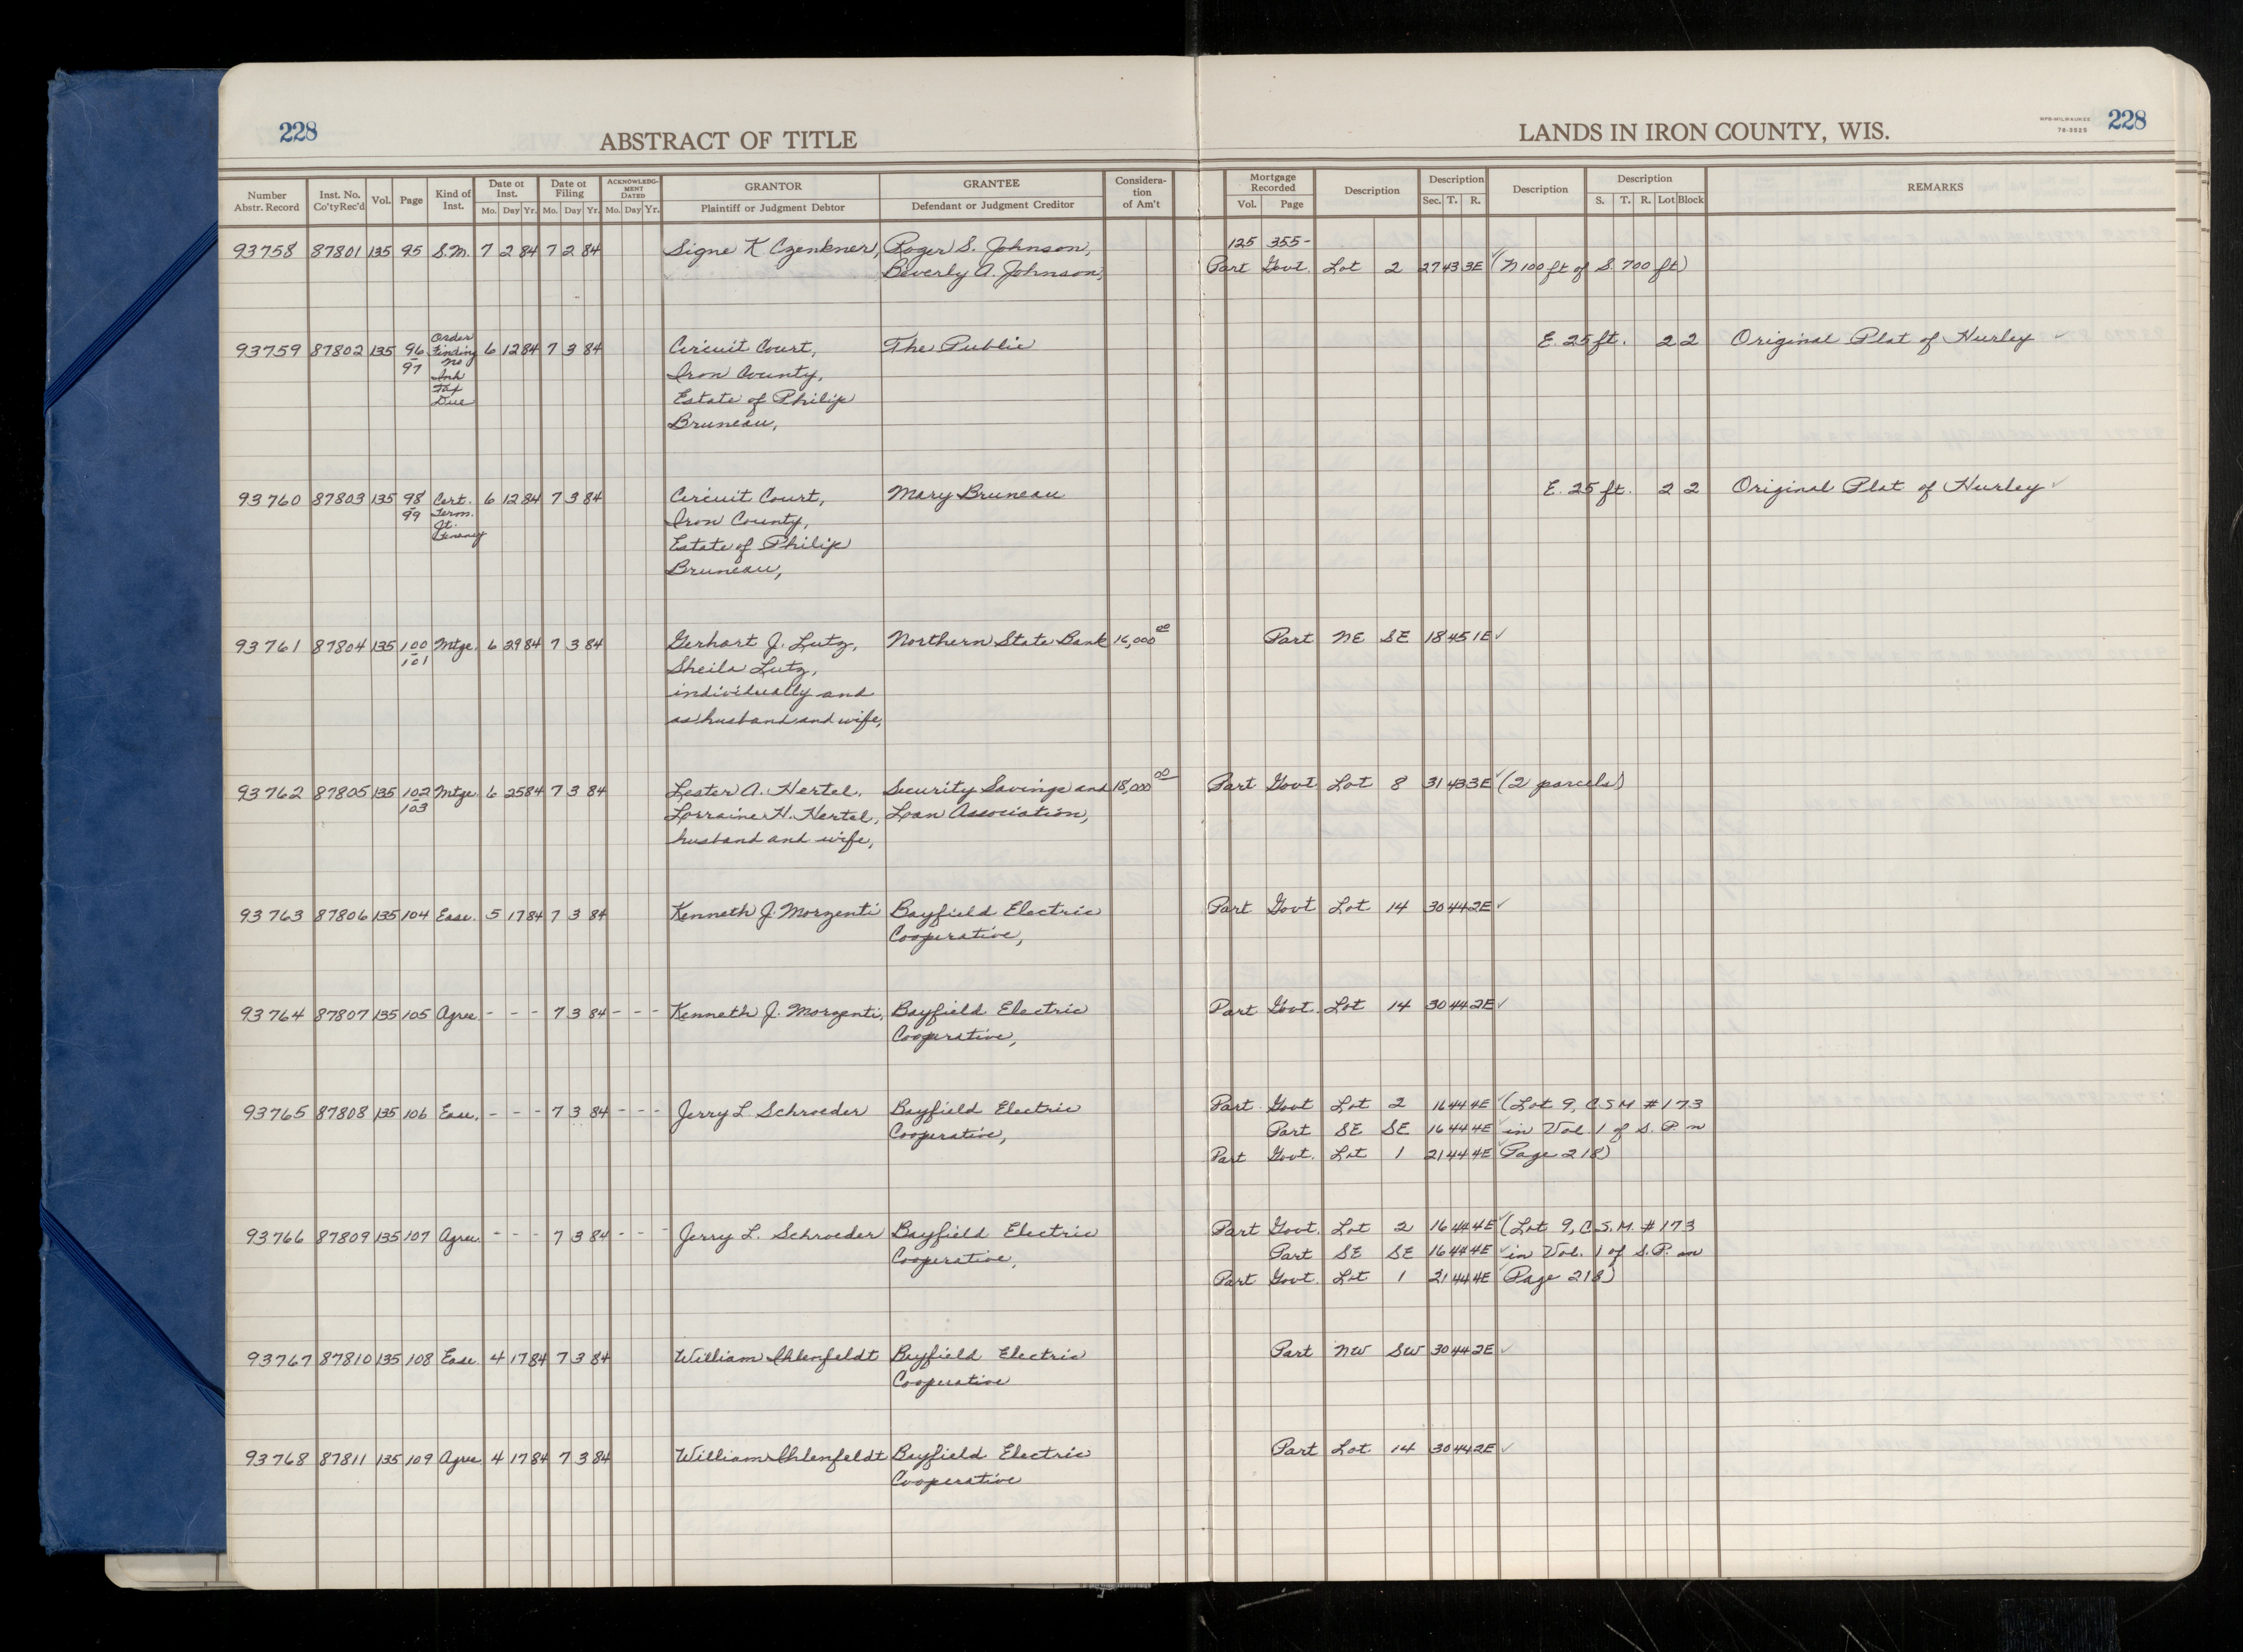 228
ABSTRACT OF TITLE
LANDS IN IRON COUNTY, WIS.
WPB-MILWAUKEE
78-3925
228
Number Abstr. Record Inst. No. Co'ty Rec'd Vol. Page Kind of Inst. Date of Inst. Mo. Day Yr. Date of Filing Mo. Day Yr. ACKNOWLEDGMENT DATED Mo. Day Yr. GRANTOR Plaintiff or Judgment Debtor GRANTEE Defendant or Judgment Creditor Consideration of Am't Mortgage Recorded Vol. Page Description Description Sec. T. R. Description Description S. T. R. Lot Block REMARKS
93758 87801 135 95 S.M. 7 2 84 7 2 84 Signe K Czenkner, Roger S. Johnson, 125 355-
Beverly A. Johnson, Part Govt. Lot 2 27 43 3E (N 100 ft of S. 700 ft)
93759 87802 135 96-97 Order Finding no Inh Tax Due 6 12 84 7 3 84 Circuit Court, The Public E. 25 ft. 2 2 Original Plat of Hurley
Iron County,
Estate of Philip
Bruneau,
93760 87803 135 98-99 Cert. Term. Jt. Tenancy 6 12 84 7 3 84 Circuit Court, Mary Bruneau E. 25 ft. 2 2 Original Plat of Hurley
Iron County,
Estate of Philip
Bruneau,
93761 87804 135 100-101 Mtge. 6 29 84 7 3 84 Gerhart J. Lutz, Northern State Bank 16,000 00 Part NE SE 18 45 1E
Sheila Lutz,
individually and
as husband and wife,
93762 87805 135 102-103 Mtge. 6 25 84 7 3 84 Lester A. Hertel, Security Savings and 18,000 00 Part Govt Lot 8 31 43 3E (2 parcels)
Lorraine H. Hertel, Loan Association,
husband and wife,
93763 87806 135 104 Ease. 5 17 84 7 3 84 Kenneth J. Morzenti Bayfield Electric Part Govt Lot 14 30 44 2E
Cooperative,
93764 87807 135 105 Agree. - - - 7 3 84 - - - Kenneth J. Morzenti, Bayfield Electric Part Govt. Lot 14 30 44 2E
Cooperative,
93765 87808 135 106 Ease. - - - 7 3 84 - - - Jerry L Schroeder Bayfield Electric Part Govt Lot 2 16 44 4E (Lot 9, C.S.M #173
Cooperative, Part SE SE 16 44 4E in Vol. 1 of S.P. on
Part Govt. Lot 1 21 44 4E Page 218)
93766 87809 135 107 Agree. - - - 7 3 84 - - - Jerry L. Schroeder Bayfield Electric Part Govt. Lot 2 16 44 4E (Lot 9, C.S.M. #173
Cooperative, Part SE SE 16 44 4E in Vol. 1 of S.P. on
Part Govt. Lot 1 21 44 4E Page 218)
93767 87810 135 108 Ease. 4 17 84 7 3 84 William Ihlenfeldt Bayfield Electric Part NW SW 30 44 2E
Cooperative
93768 87811 135 109 Agree. 4 17 84 7 3 84 William Ihlenfeldt Bayfield Electric Part Lot 14 30 44 2E
Cooperative